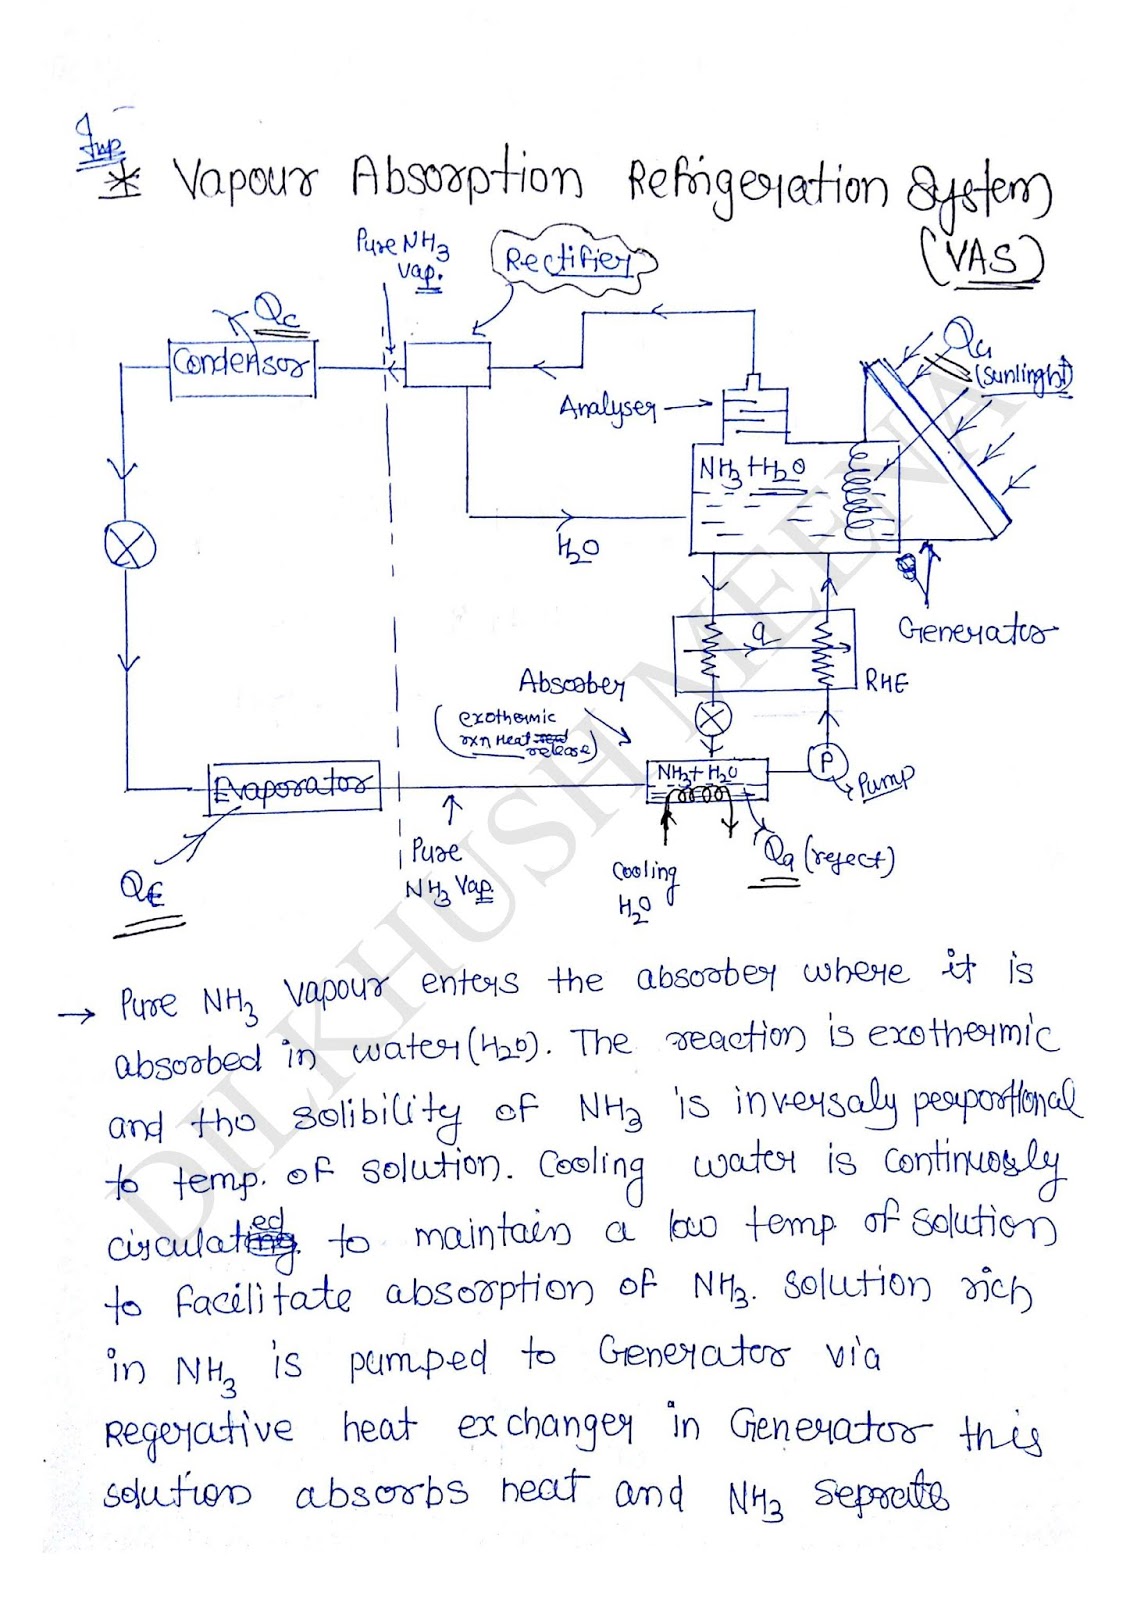 Imp
* Vapour Absorption Refrigeration System
(VAS)
Pure NH3
Vap.
Rectifier
Qc
Condensor
QG
(Sunlinght)
Analyser
NH3 + H2O
H2O
Generator
q
RHE
Absorber
(exothermic
rxn Heat release)
NH3 + H2O
P
Pump
Evaporator
Pure
NH3 Vap.
QE
Cooling
H2O
Qa (reject)
→ Pure NH3 vapour enters the absorber where it is
absorbed in water (H2O). The reaction is exothermic
and tho solibility of NH3 is inversaly perportional
to temp. of solution. Cooling water is continuosly
circulated to maintain a low temp of solution
to facilitate absorption of NH3. Solution rich
in NH3 is pumped to Generator via
Regerative heat exchanger in Generator this
solution absorbs heat and NH3 seprate
DILKHUSH MEENA